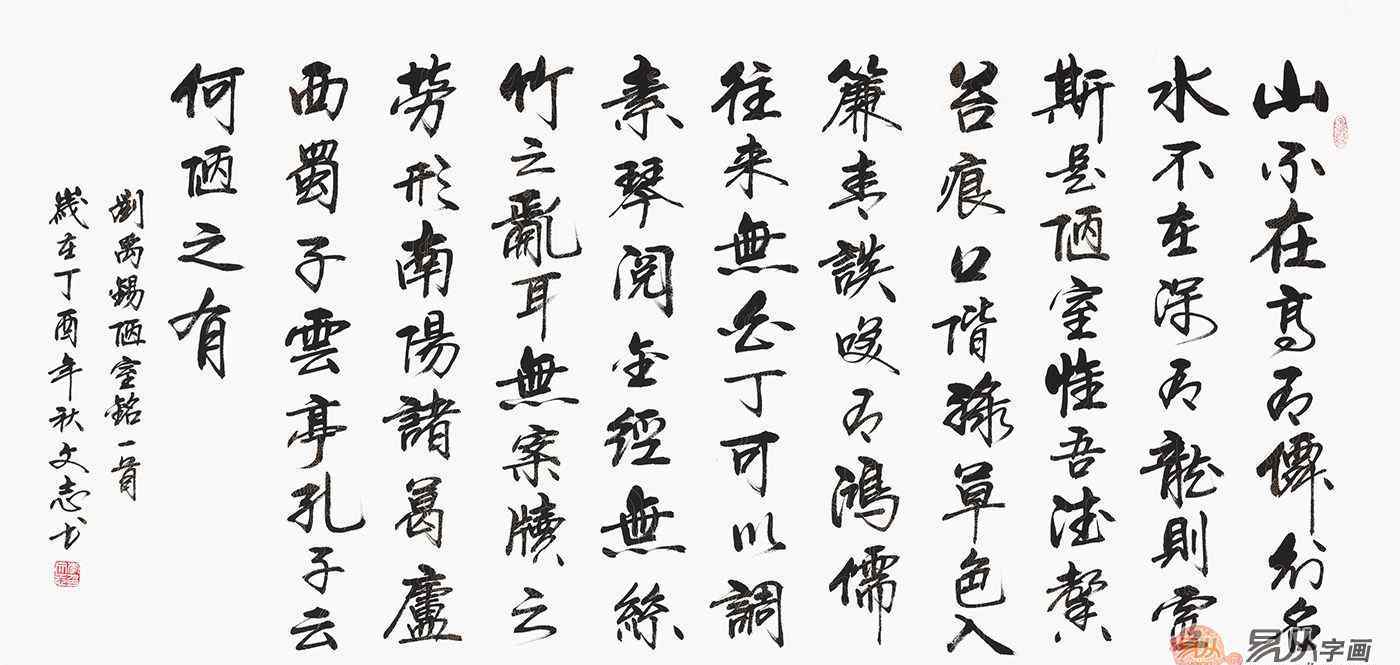 山不在高有僊則名
水不在深有龍則靈
斯是陋室惟吾德馨
苔痕上階綠草色入
簾青談咲有鴻儒
往來無白丁可以調
素琴閱金經無絲
竹之亂耳無案牘之
勞形南陽諸葛廬
西蜀子雲亭孔子云
何陋之有
劉禹錫陋室銘一首
歲在丁酉年秋文志书
易从字画